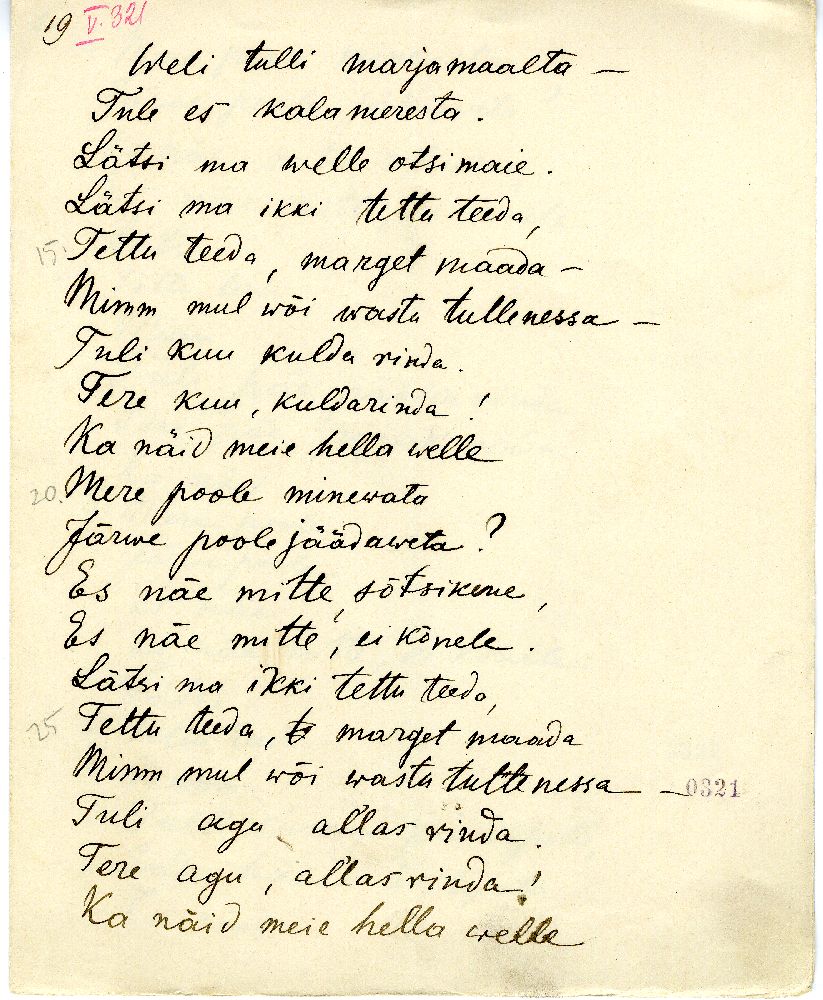 19 V. 321
Weli tulli marjamaalta —
Tule es kalameresta.
Lätsi ma welle otsimaie.
Lätsi ma ikki tettu teeda,
15. Tettu teeda, marget maada —
Mimm mul wõi wasta tullenessa —
Tuli kuu kulda rinda.
Tere kuu, kuldarinda!
Ka näid meie hella welle
20. Mere poole minewata
Järwe poole jäädaweta?
Es näe mitte, sõtsikene,
Es näe mitte, ei kõnele.
Lätsi ma ikki tettu teeda,
25 Tettu teeda, marget maada
Mimm mul wõi wasta tullenessa —
0321
Tuli agu allas rinda.
Tere agu, allas rinda!
Ka näid meie hella welle